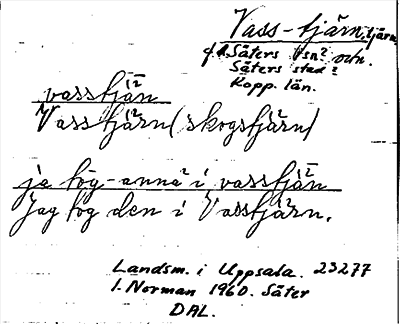 Vass-tjärn, tjärn
f.d. Säters lsn? och
Säters stad?
Kopp. län.
vasstjän
Vasstjärn (skogstjärn)
ja tög-anna i vasstjän
Jag tog den i Vasstjärn.
Landsm. i Uppsala. 23277
I. Norman 1960. Säter
DAL.